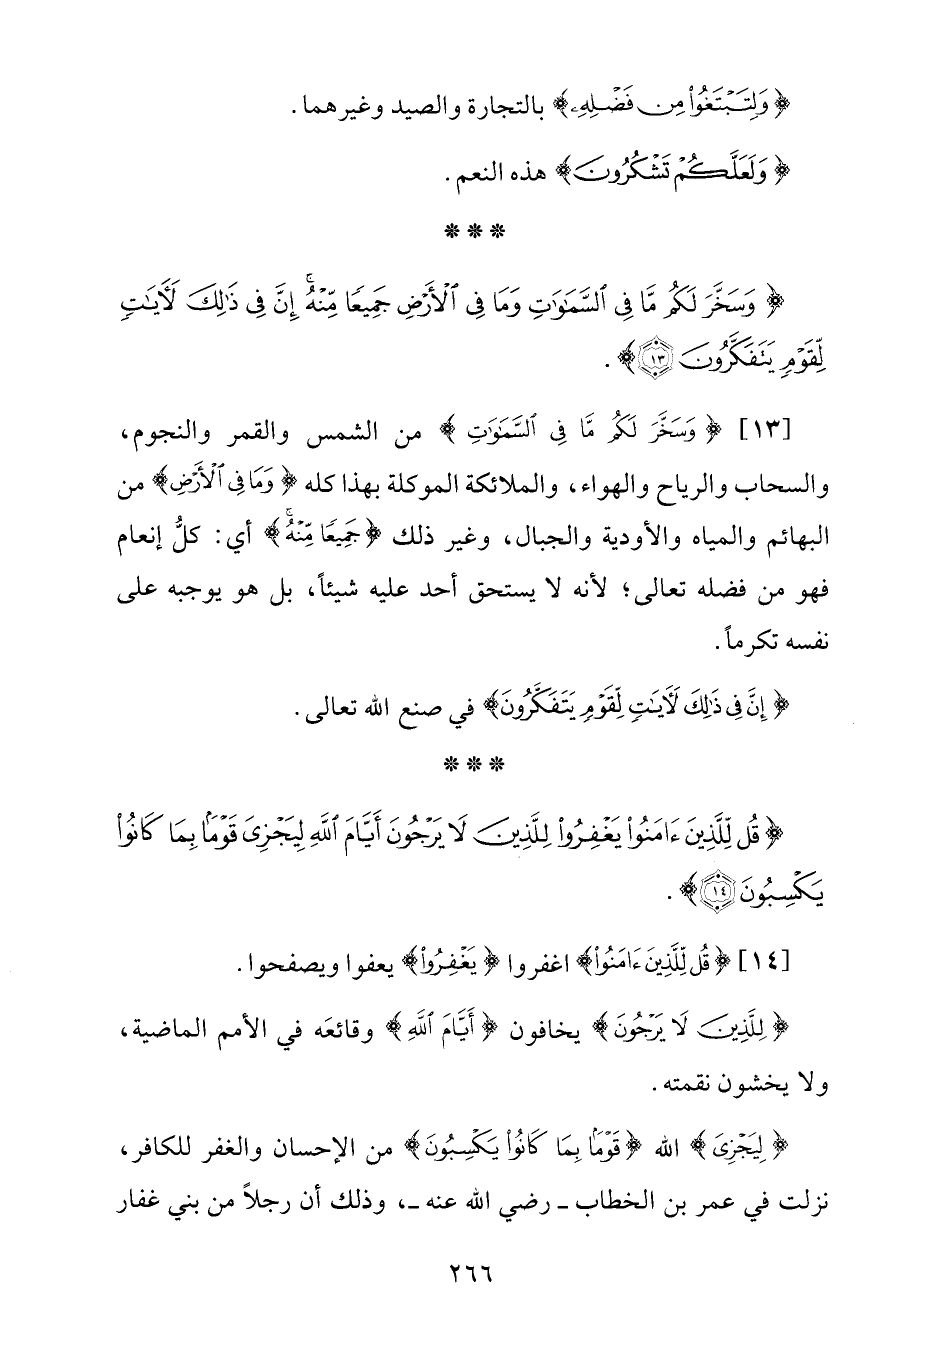 ﴿ وَلِتَبْتَغُوا۟ مِن فَضْلِهِۦ﴾ بالتجارة والصيد وغيرهما.
﴿ وَلَعَلَّكُمْ تَشْكُرُونَ﴾ هذه النعم.
* * *
﴿ وَسَخَّرَ لَكُم مَّا فِى ٱلسَّمَـٰوَٰتِ وَمَا فِى ٱلْأَرْضِ جَمِيعًا مِّنْهُ ۚ إِنَّ فِى ذَٰلِكَ لَـَٔايَـٰتٍ
لِّقَوْمٍ يَتَفَكَّرُونَ ١٣﴾.
[١٣] ﴿ وَسَخَّرَ لَكُم مَّا فِى ٱلسَّمَـٰوَٰتِ ﴾ من الشمس والقمر والنجوم،
والسحاب والرياح والهواء، والملائكة الموكلة بهذا كله ﴿ وَمَا فِى ٱلْأَرْضِ﴾ من
البهائم والمياه والأودية والجبال، وغير ذلك ﴿جَمِيعًا مِّنْهُ ۚ﴾ أي: كلُّ إنعام
فهو من فضله تعالى؛ لأنه لا يستحق أحد عليه شيئاً، بل هو يوجبه على
نفسه تكرماً.
﴿ إِنَّ فِى ذَٰلِكَ لَـَٔايَـٰتٍ لِّقَوْمٍ يَتَفَكَّرُونَ﴾ في صنع الله تعالى.
* * *
﴿ قُل لِّلَّذِينَ ءَامَنُوا۟ يَغْفِرُوا۟ لِلَّذِينَ لَا يَرْجُونَ أَيَّامَ ٱللَّهِ لِيَجْزِىَ قَوْمًۢا بِمَا كَانُوا۟
يَكْسِبُونَ ١٤﴾.
[١٤] ﴿قُل لِّلَّذِينَ ءَامَنُوا۟﴾ اغفروا ﴿ يَغْفِرُوا۟﴾ يعفوا ويصفحوا.
﴿ لِلَّذِينَ لَا يَرْجُونَ﴾ يخافون ﴿ أَيَّامَ ٱللَّهِ ﴾ وقائعَه في الأمم الماضية،
ولا يخشون نقمته.
﴿ لِيَجْزِىَ ﴾ الله ﴿قَوْمًۢا بِمَا كَانُوا۟ يَكْسِبُونَ﴾ من الإحسان والغفر للكافر،
نزلت في عمر بن الخطاب ـ رضي الله عنه ـ، وذلك أن رجلاً من بني غفار
٢٦٦